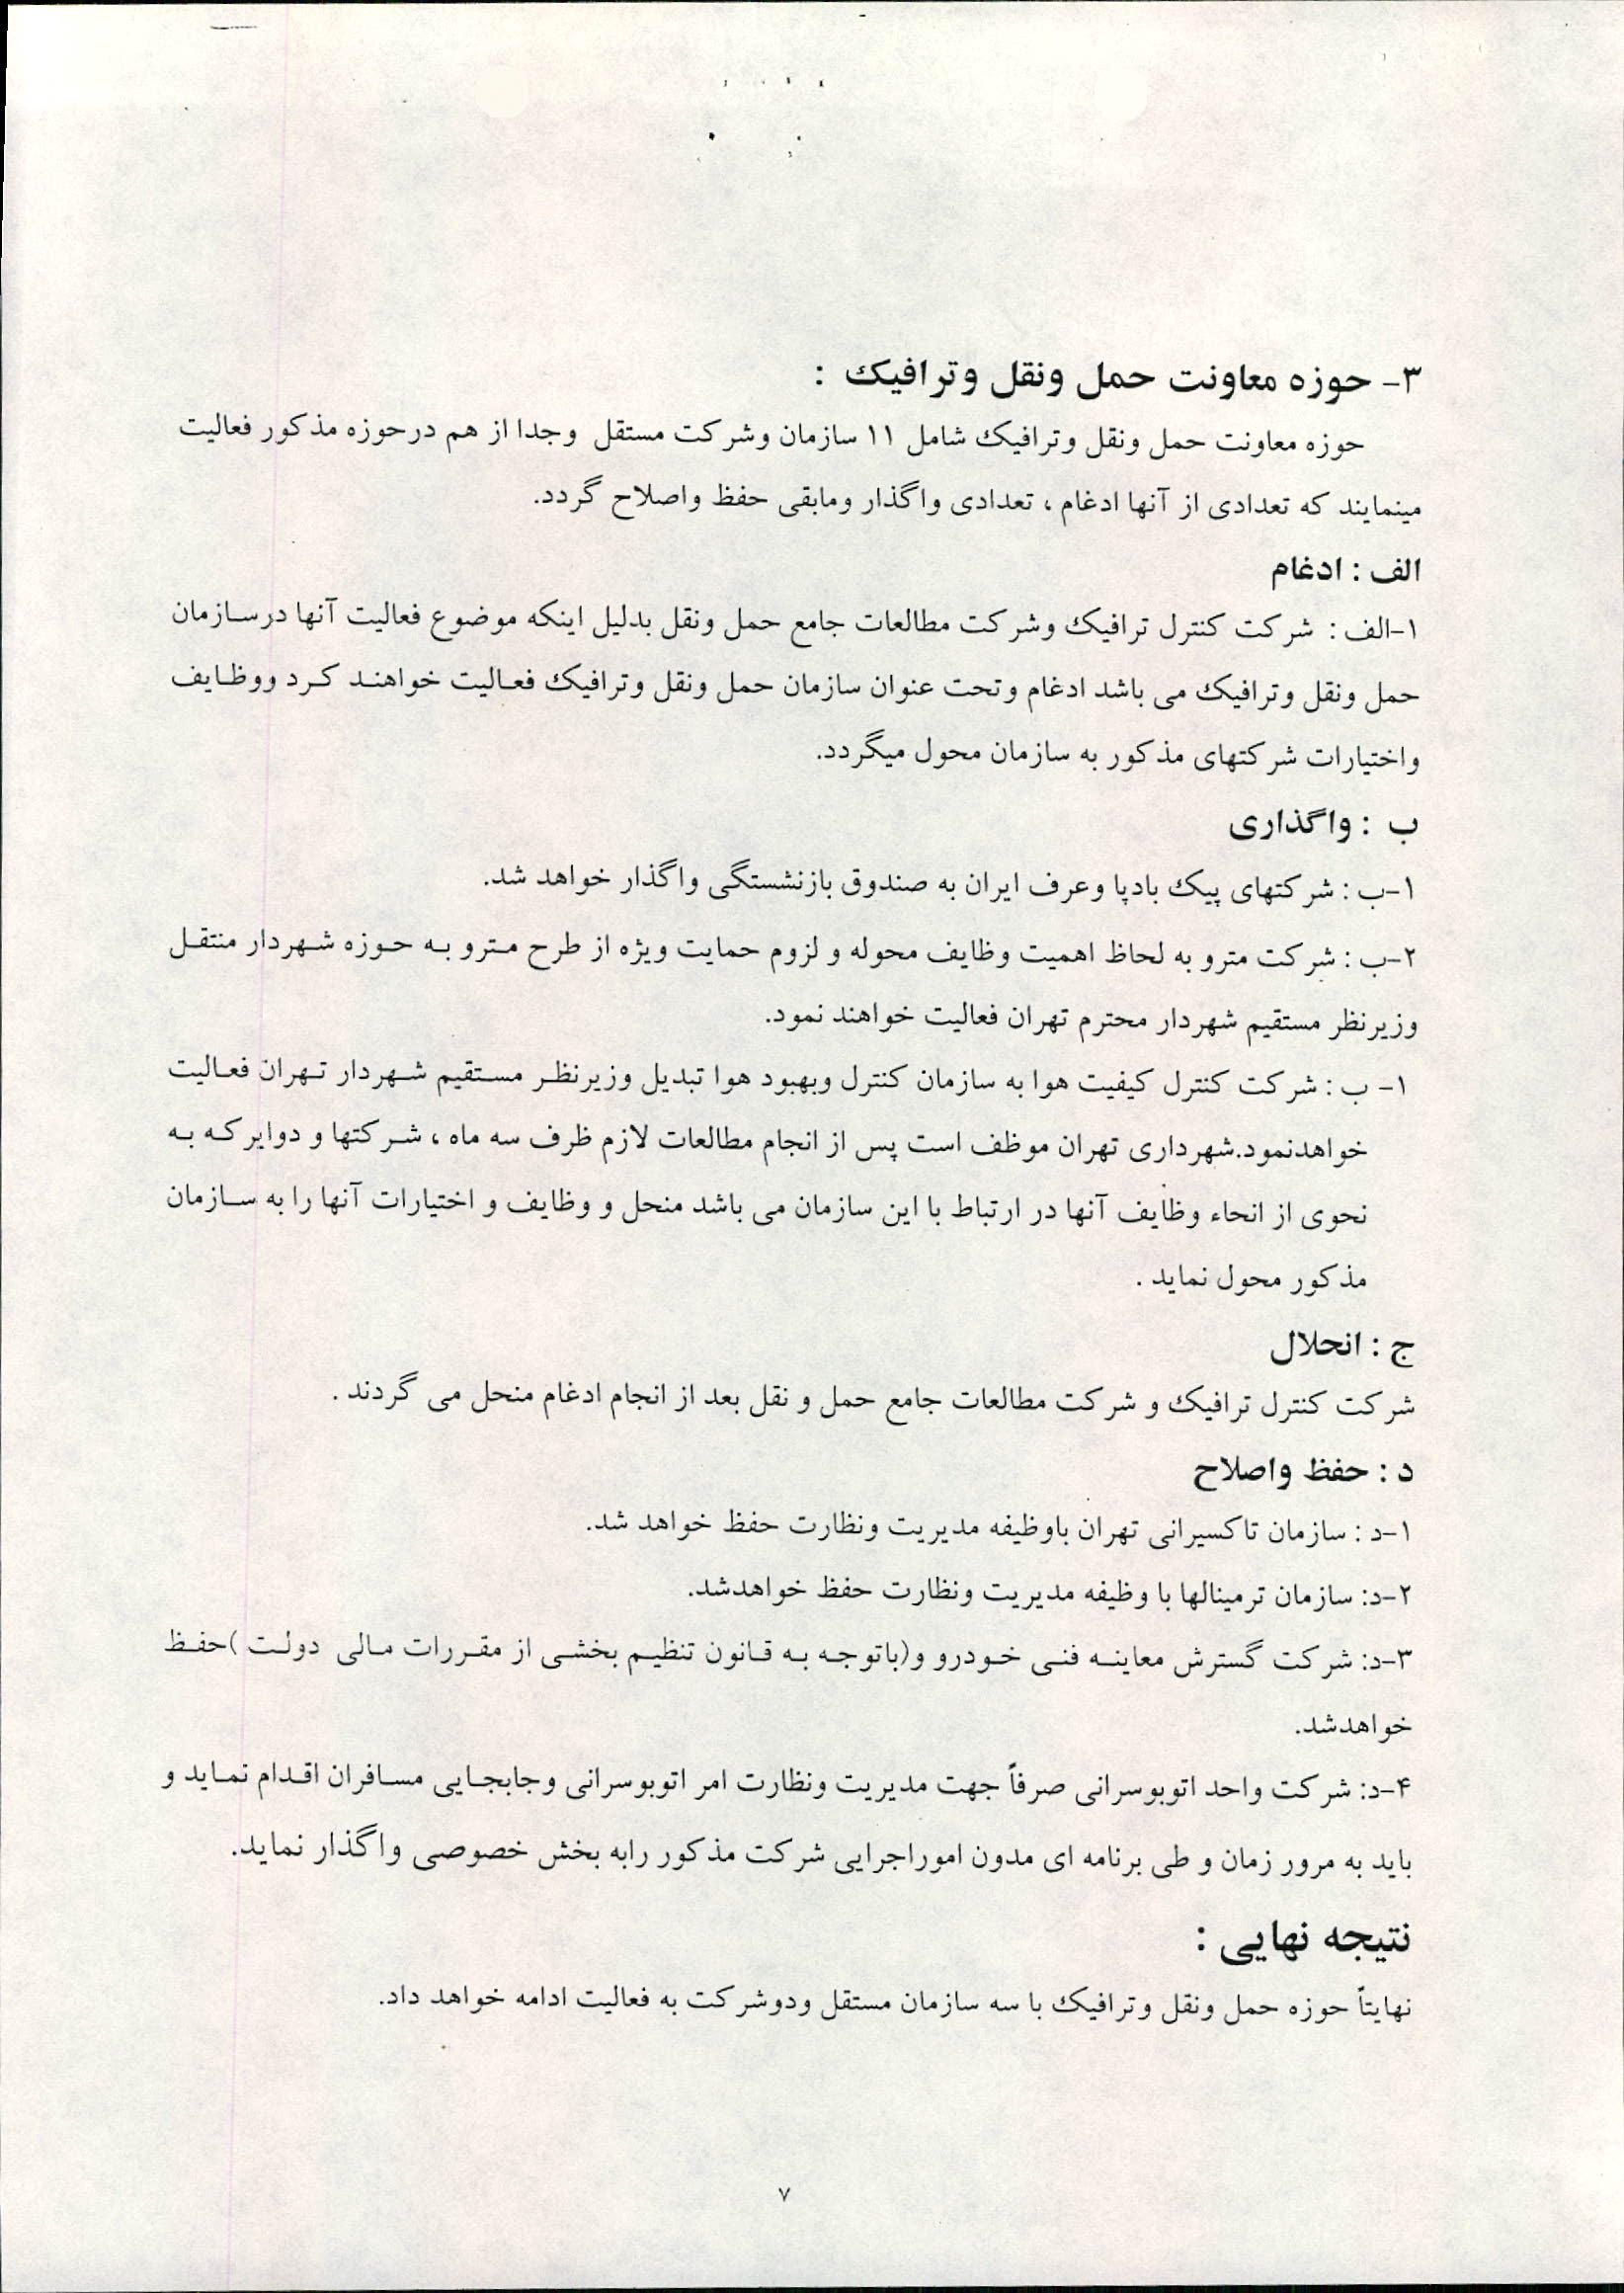 ۳- حوزه معاونت حمل ونقل وترافیک :
حوزه معاونت حمل ونقل وترافیک شامل ۱۱ سازمان وشرکت مستقل وجدا از هم درحوزه مذکور فعالیت
مینمایند که تعدادی از آنها ادغام ، تعدادی واگذار ومابقی حفظ واصلاح گردد.
الف : ادغام
۱-الف : شرکت کنترل ترافیک وشرکت مطالعات جامع حمل ونقل بدلیل اینکه موضوع فعالیت آنها درسازمان
حمل ونقل وترافیک می باشد ادغام وتحت عنوان سازمان حمل ونقل وترافیک فعالیت خواهند کرد ووظایف
واختیارات شرکتهای مذکور به سازمان محول میگردد.
ب : واگذاری
۱-ب : شرکتهای پیک بادپا وعرف ایران به صندوق بازنشستگی واگذار خواهد شد.
۲-ب : شرکت مترو به لحاظ اهمیت وظایف محوله و لزوم حمایت ویژه از طرح مترو به حوزه شهردار منتقل
وزیرنظر مستقیم شهردار محترم تهران فعالیت خواهند نمود.
۱- ب : شرکت کنترل کیفیت هوا به سازمان کنترل وبهبود هوا تبدیل وزیرنظر مستقیم شهردار تهران فعالیت
خواهدنمود.شهرداری تهران موظف است پس از انجام مطالعات لازم ظرف سه ماه ، شرکتها و دوایر که به
نحوی از انحاء وظایف آنها در ارتباط با این سازمان می باشد منحل و وظایف و اختیارات آنها را به سازمان
مذکور محول نماید .
ج : انحلال
شرکت کنترل ترافیک و شرکت مطالعات جامع حمل و نقل بعد از انجام ادغام منحل می گردند .
د : حفظ واصلاح
۱-د : سازمان تاکسیرانی تهران باوظیفه مدیریت ونظارت حفظ خواهد شد.
۲-د: سازمان ترمینالها با وظیفه مدیریت ونظارت حفظ خواهدشد.
۳-د: شرکت گسترش معاینه فنی خودرو و(باتوجه به قانون تنظیم بخشی از مقررات مالی دولت )حفظ
خواهدشد.
۴-د: شرکت واحد اتوبوسرانی صرفاً جهت مدیریت ونظارت امر اتوبوسرانی وجابجایی مسافران اقدام نماید و
باید به مرور زمان و طی برنامه ای مدون اموراجرایی شرکت مذکور رابه بخش خصوصی واگذار نماید.
نتیجه نهایی :
نهایتاً حوزه حمل ونقل وترافیک با سه سازمان مستقل ودوشرکت به فعالیت ادامه خواهد داد.
۷